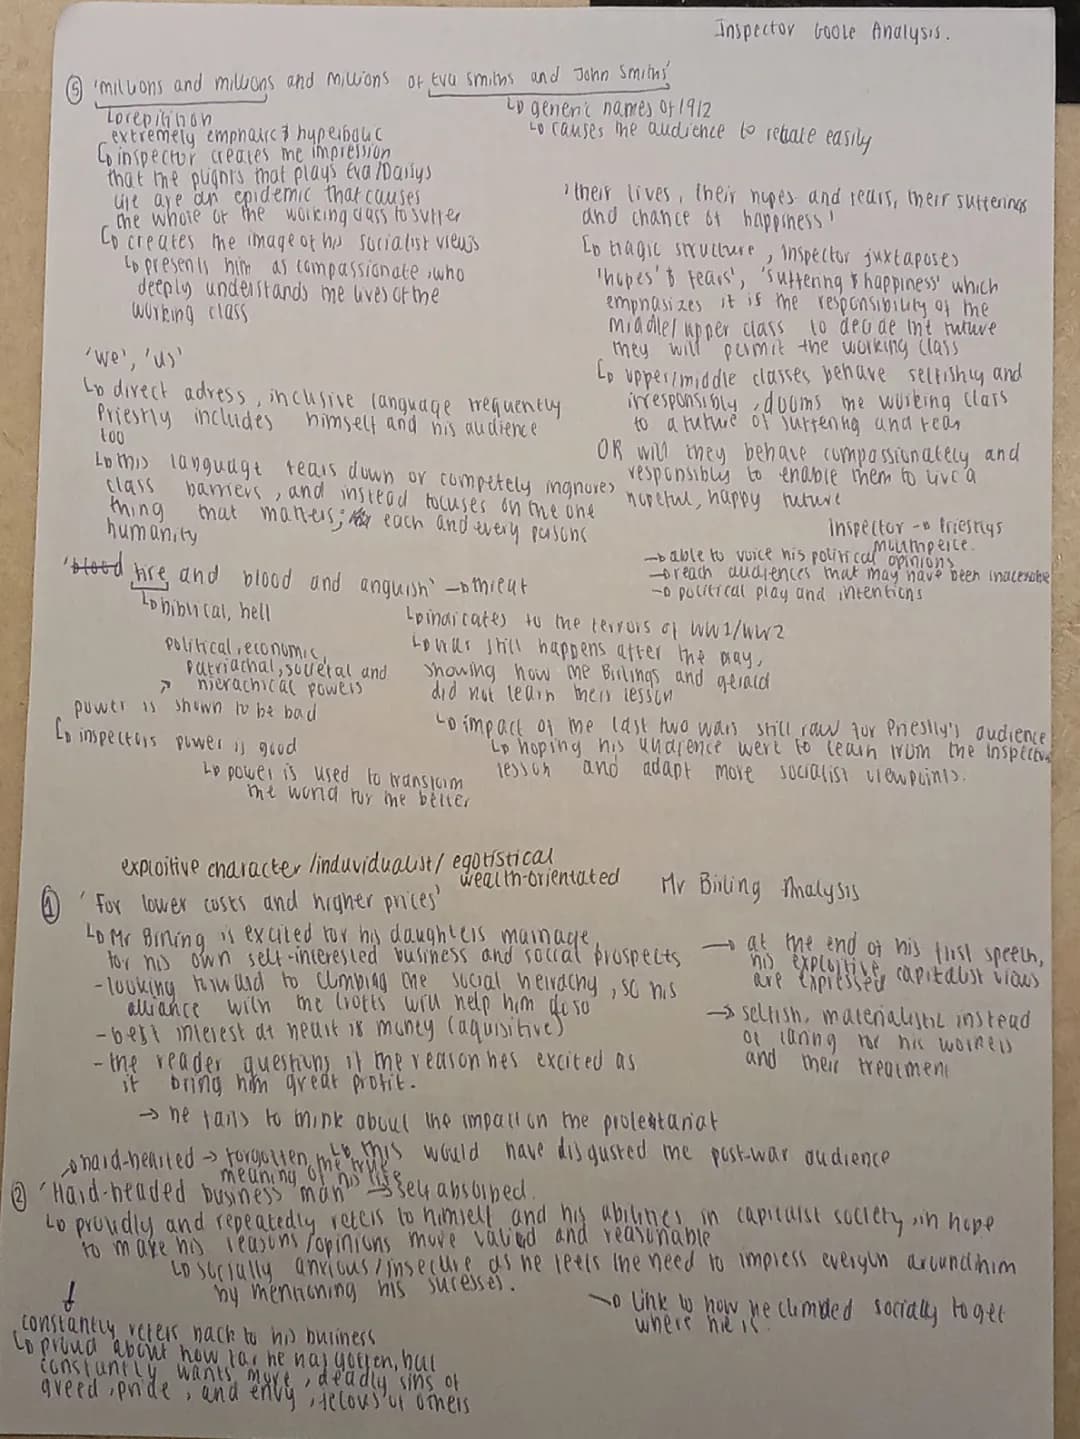 Inspector Goole Analysis.
⑤ 'millions and millions and millions of Eva Smiths and John Smiths'
↳ repitition
extremely emphatic & hyperbolic
↳ inspector creates the impression
that the plights that plays Eva/Daisys
life are an epidemic that causes
the whole of the working class to suffer
↳ creates the image of his socialist views
↳ presents him as compassionate, who
deeply understands the lives of the
working class
↳ generic names of 1912
↳ causes the audience to relate easily
'their lives, their hopes and fears, their sufferings
and chance of happiness'
↳ tragic structure, inspector juxtaposes
'hopes' & fears', 'suffering & happiness' which
emphasizes it is the responsibility of the
middle/upper class to decide the future
they will permit the working class
↳ upper/middle classes behave selfishly and
irresponsibly, dooms the working class
to a future of suffering and fear
OR will they behave compassionately and
responsibly to enable them to live a
hopeful, happy future
'we', 'us'
↳ direct adress, inclusive language frequently
Priestly includes himself and his audience
too
↳ this language tears down or competely ingnores
class barriers, and instead focuses on the one
thing that matters; each and every persons
humanity
Inspector → Priestlys
mouthpeice.
→ able to voice his political opinions
→ reach audiences that may have been inaccesible
→ political play and intentions
'blood fire and blood and anguish' → threat
↳ biblical, hell
↳ indicates to the terrors of WW1/WW2
↳ war still happens after the play,
showing how the Birlings and gerald
did not learn their lesson
↳ impact of the last two wars still raw for Priestly's audience
↳ hoping his audience were to learn from the inspectors
lesson and adapt more socialist viewpoints.
political, economic,
patriachal, societal and
↗ hierachical powers
power is shown to be bad
↳ inspectors power is good
↳ power is used to transform
the world for the better
exploitive character/induvidualist/egotistical
wealth-orientated
Mr Birling Analysis
① 'For lower costs and higher prices'
↳ Mr Birling is excited for his daughters marriage,
for his own self-interested business and social prospects
- looking forward to climbing the social heirachy, so his
alliance with the Crofts will help him do so
- best interest at heart is money (aquisitive)
- the reader questions if the reason hes excited as
it bring him great profit.
→ he fails to think about the impact on the proletariat
↳ this would have disgusted the post-war audience
→ at the end of his first speech,
his exploitive, capitalist views
are expressed
→ selfish, materialistic instead
of caring for his workers
and their treatment
→ hard-hearted → forgotten the true
meaning of his life
② 'Hard-headed business man' → self absorbed.
↳ proudly and repeatedly refers to himself and his abilities in capitalist society, in hope
to make his reasons/opinions more valied and reasonable
↳ socially anxious/insecure as he feels the need to impress everyon around him
by mentioning his sucesses.
→ link to how he climbed socially to get
where he is.
↓
constantly refers back to his business
↳ proud about how far he has gotten, but
constantly wants more, deadly sins of
greed, pride, and envy, jelous of others